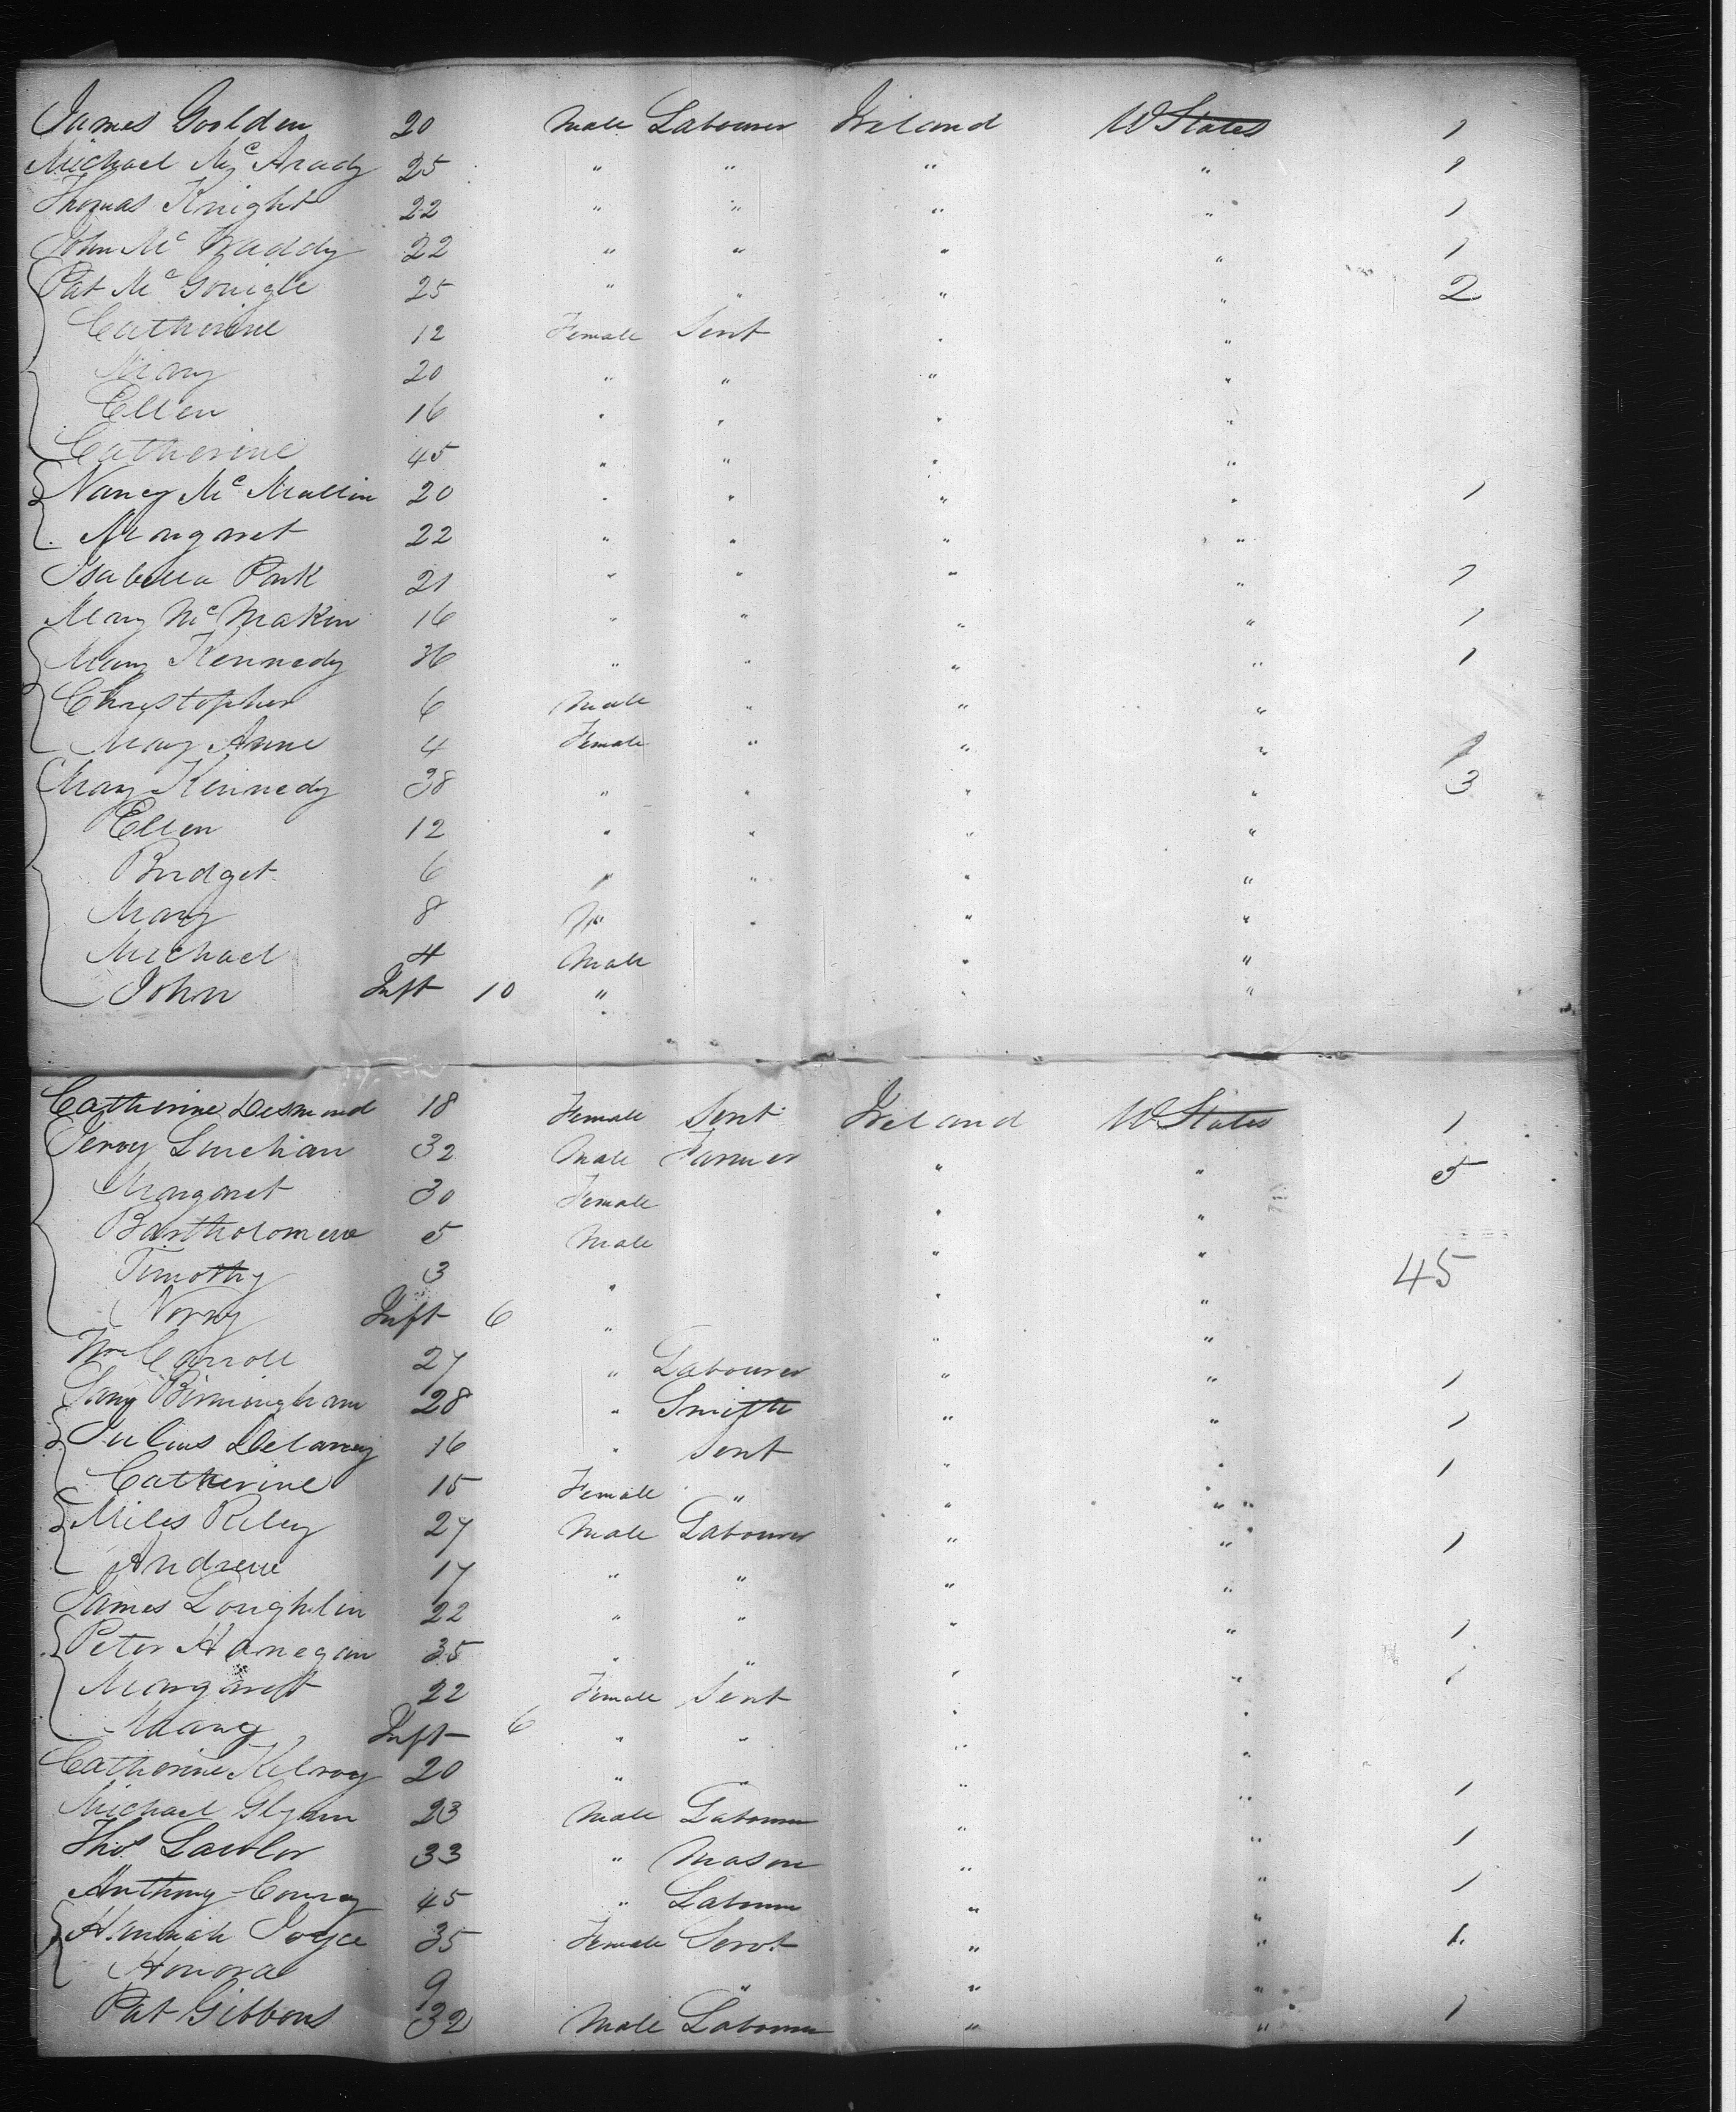 James Goolden 20 Male Labourer Ireland U States 1
Michael Mc Arady 25 " " " " 1
Thomas Knight 22 " " " " 1
John Mc Waddy 22 " " " " 1
Pat Mc Gonigle 25 " " " " 2
Catherine 12 Female Sevt " "
Mary 20 " " " "
Ellen 16 " " " "
Catherine 45 " " " "
Nancy Mc Mullin 20 " " " " 1
Margaret 22 " " " "
Isabella Park 21 " " " " 1
Mary Mc Makin 16 " " " " 1
Mary Kennedy 36 " " " " 1
Christopher 6 Male " " "
Mary Anne 4 Female " " "
Mary Kennedy 38 " " " " 3
Ellen 12 " " " "
Bridget 6 " " " "
Mary 8 " " "
Michael 4 Male " "
John Inft 10 " " "
Catherine Desmond 18 Female Sevt Ireland U States 1
Jerry Linehan 32 Male Farmer " " 5
Margaret 30 Female " "
Bartholomew 5 Male " "
45
Timothy 3 " " "
Norry Inft 6 " " "
Wm Carroll 27 " Labourer " " 1
Birmingham 28 " Smith " " 1
Julius Delaney 16 " Sevt " " 1
Catherine 15 Female " " "
Miles Riley 27 Male Labourer " " 1
Andrew 17 " " " "
James Loughlin 22 " " " " 1
Peter Hanegan 35 " " " " 1
Margaret 22 Female Sevt " "
Mary Inft 6 " " " "
Catherine Kilroy 20 " " " " 1
Michael Glynn 23 Male Labourer " " 1
Thos Lawlor 33 " Mason " " 1
Anthony Conroy 45 " Labourer " "
Hannah Joyce 35 Female Servt " " 1
Honora 9 " " "
Pat Gibbons 32 Male Labourer " " 1